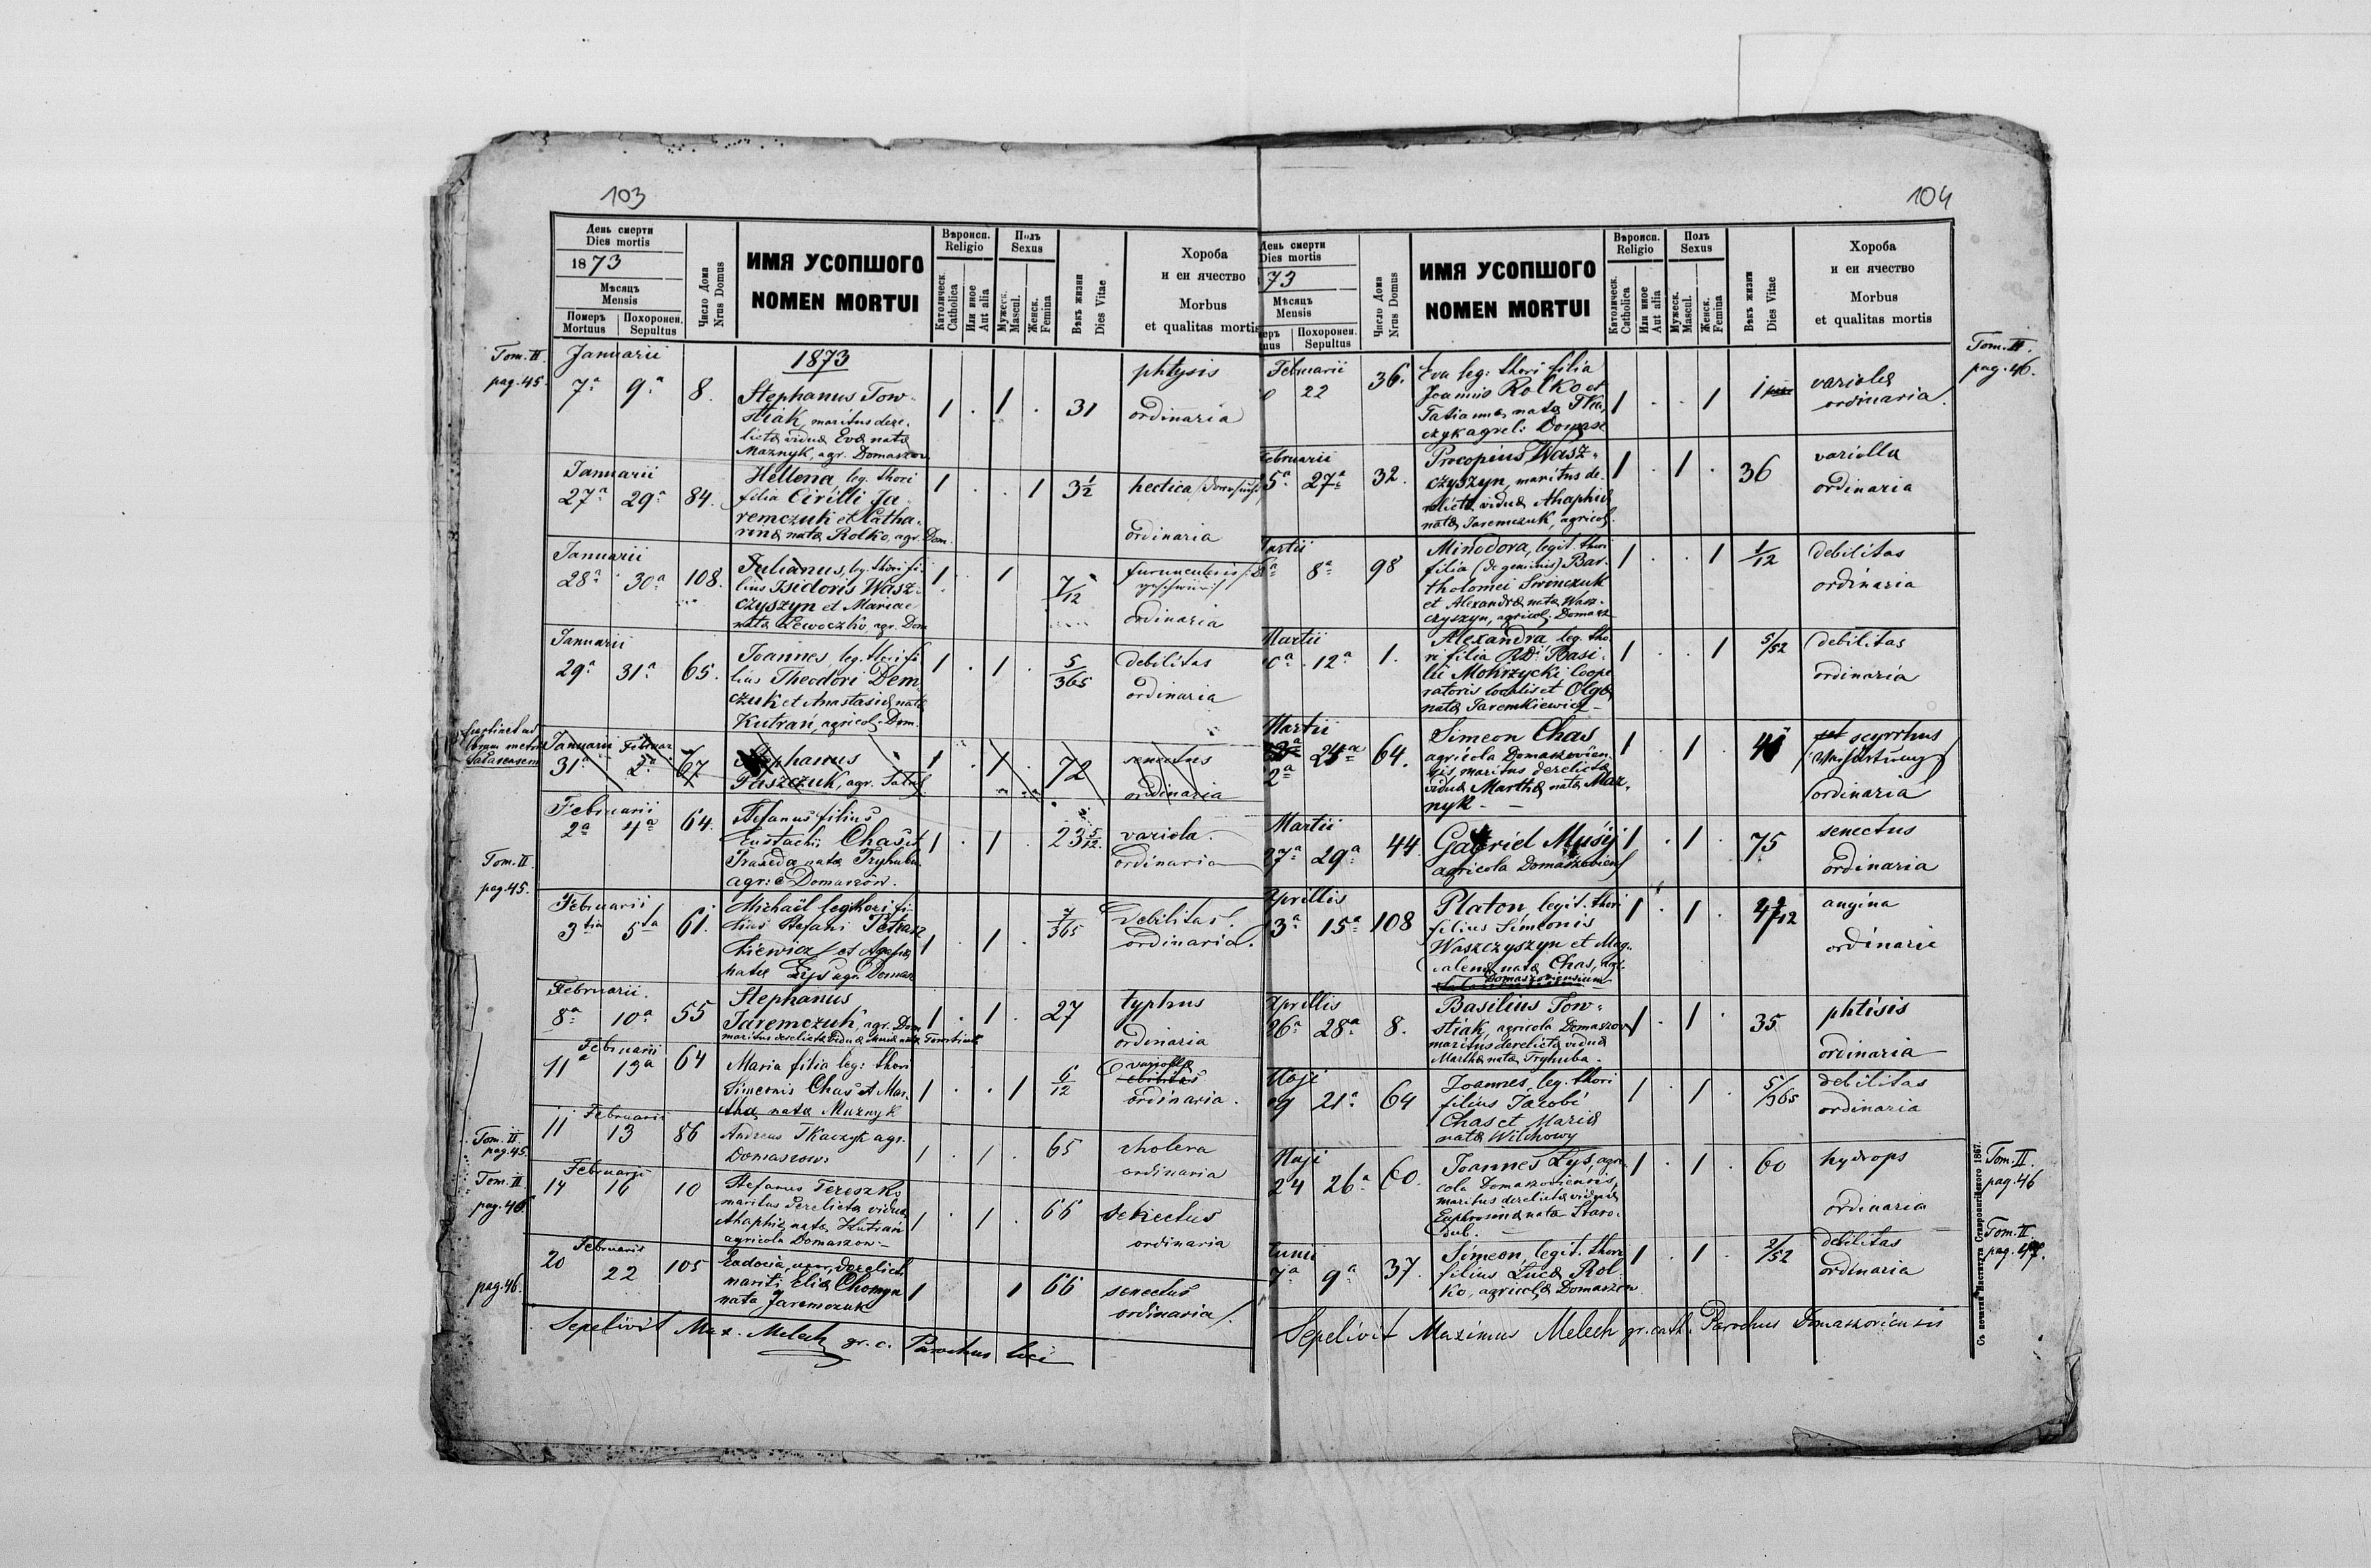 103
День смерти
Dies mortis
1873
Мѣсяцъ
Mensis
Померъ
Mortuus
Похоронен.
Sepultus
Число Дома
Nrus Domus
ИМЯ УСОПШОГО
NOMEN MORTUI
Вѣроисп.
Religio
Католическ.
Catholica
Или иное
Aut alia
Полъ
Sexus
Мужеск.
Mascul.
Женск.
Femina
Вѣкъ жизни
Dies Vitae
Хороба
и еи ячество
Morbus
et qualitas mortis
Tom. II.
pag. 45.
Januarii
1873
7ª 9ª 8.
Stephanus Tow-
stiak, maritus dere-
lictæ viduæ Evæ natæ
Maznyk, agr. Domaszow
1 . 1 . 31
phtysis
ordinaria
Januarii
27ª 29ª 84.
Hellena leg. thori
filia Cirilli Ja-
remczuk et Catha-
rinæ natæ Rolko, agr. Dom.
1 . . 1 3½
hectica
ordinaria
Januarii
28ª 30ª 108.
Julianus, leg. thori fi-
lius Isidoris Wasz-
czyszyn et Mariae
natæ Lewoczko, agr. Dom
1 . 1 7/12
ordinaria
Januarii
29ª 31ª 65.
Joannes, leg. thori fi-
lius Theodori Dem-
czuk et Anastasiæ natæ
Kutrań, agricol. Dom.
1 . 1 . 5/365
debilitas
ordinaria
Januarii Februar
31ª 2ª 67
Stephanus
1 . 1 . 72
senectus
ordinaria
Februarii
2ª 4ª 64.
Stefanus filius
Eustachii Chas et
Praxeda nata Tryhuba
agr: Domaszów.
1 . 1 . 23 5/12
variola
ordinaria
Tom. II
pag. 45.
Februarii
3tia 5ta 61.
Michaël leg thori fi-
lius Stefani Petrasz
kiewicz et Agafiæ
natæ Lys agr. Domasz
1 . 1 . 7/365
Debilitas
ordinaria.
Februarii.
8ª 10ª 55
Stephanus
Jaremczuk, agr. Dom
1 . 1 . 27
typhus
ordinaria
Februarii
11ª 13ª 64
Maria filia leg: thori
Simeonis Chas et Mar-
thæ nata Maznyk
1 . . 1 6/12
variolla
ordinaria.
Tom. II
pag. 45.
Februarii
11 13 86
Andreas Tkaczyk agr.
Domaszow.
1 . 1 . 65
cholera
ordinaria
Tom. II
pag. 46.
Februarii
14 16 10
Stefanus Tereszko
maritus derelictæ viduæ
Ahaphiæ natæ Kutrań
agricola Domaszow.
1 . 1 . 66
senectus
ordinaria
pag. 46.
Februarii
20 22 105
Eudocia, uxor, derelicti
mariti Eliæ Chomyn
nata Jaremczuk
1 1 66
senectus
ordinaria
Sepelivit Max. Melech gr. c. Parochus loci
104
День смерти
Dies mortis
73
Мѣсяцъ
Mensis
Похоронен.
Sepultus
Число Дома
Nrus Domus
ИМЯ УСОПШОГО
NOMEN MORTUI
Вѣроисп.
Religio
Католическ.
Catholica
Или иное
Aut alia
Полъ
Sexus
Мужеск.
Mascul.
Женск.
Femina
Вѣкъ жизни
Dies Vitae
Хороба
и еи ячество
Morbus
et qualitas mortis
Tom. II.
pag. 46.
Februarii
22 36.
Eva leg: thori filia
Joannis Rolko et
Tatiannæ natæ Tka-
czyk agrcl: Domasz
1 . . 1 1
variola
ordinaria.
Februarii
5ª 27ª 32.
Procopius Wasz-
czyszyn, maritus de-
relictæ viduæ Ahaphiæ
natæ Jaremczuk, agricol.
1 . 1 . 36
variolla
ordinaria
8ª 98
Minodora, legit. thori
filia (de geminis) Bar-
tholomei Swinczuk
et Alexandræ natæ Wasz-
czyszyn, agricol. Domasz
1 . . 1 1/12
debilitas
ordinaria
Martii
12ª 1.
Alexandra, leg. tho-
ri filia RD: Basi-
lii Mohrzycki, Coope-
ratoris localis et Olgæ
natæ Jaremkiewicz
1 . . 1 5/52
debilitas
ordinaria
Martii
2ª 24ª 64.
Simeon Chas
agricola Domaszovien-
sis, maritus derelictæ
viduæ Marthæ natæ Maz-
nyk
1 . 1 .
scyrrhus
ordinaria
Martii
27ª 29ª 44
Gabriel Musij
agricola Domaszoviens
1 . 1 . 75
senectus
ordinaria
Aprillis
3ª 15ª 108
Platon legit. thori
filius Simeonis
Waszczyszyn et Mag-
dalenæ natæ Chas, agr.
Domaszoviensium
1 . 1 .
angina
ordinaria
Aprillis
26ª 28ª 8.
Basilius Tow-
stiak, agricola Domaszow
maritus derelictæ viduæ
Marthæ natæ Tryhuba.
1 . 1 . 35
phtisis
ordinaria
Maji
21ª 64
Joannes, leg. thori
filius Jacobi
Chas et Mariæ
natæ Witchowy
1 . 1 . 5/365
debilitas
ordinaria
Tom. II
pag. 46
Maji
24 26ª 60.
Joannes Lys, agri-
cola Domaszoviensis,
maritus derelictæ viduæ
Euphrosinæ natæ Staro-
dub.
1 . 1 . 60
hydrops
ordinaria
Tom. II
Junii
7ª 9ª 37.
Simeon, legit. thori
filius Lucæ Rol-
ko, agricolæ Domaszow
1 . 1 . 2/52
debilitas
ordinaria
Sepelivit Maximus Melech gr. cath. Parochus Domaszoviensis
Съ печатни Института Ставропигійского 1867.